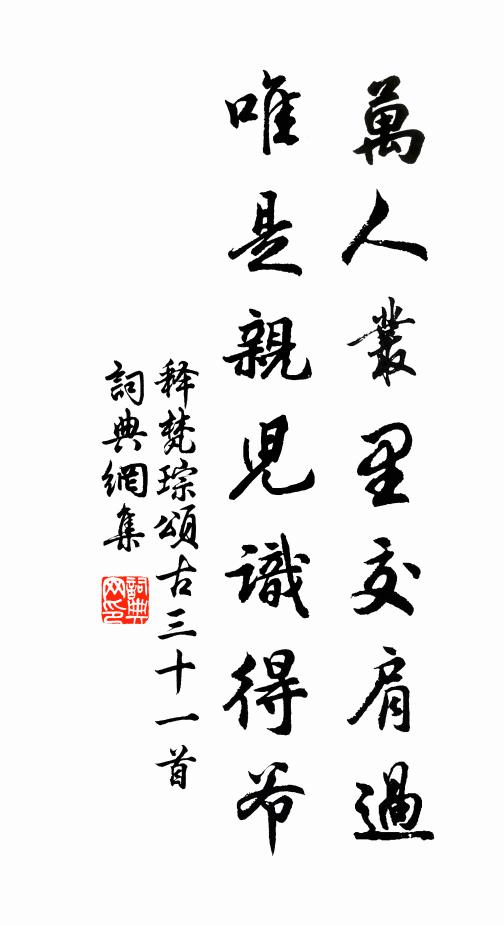 萬人叢里交肩過
唯是親児識得爺
释梵琮頌古三十一首
詞典網集
詞典
网印